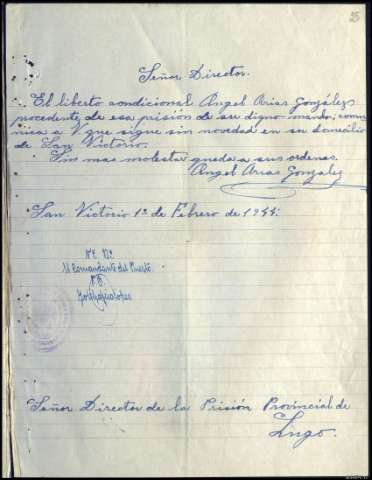 25
Señor Director.
El liberto condicional Angel Arias González
procedente de esa prisión de su digno mando, comu
nica a V que sigue sin novedad en su domicilio
de San Victorio.
Sin mas molesta queda a sus ordenes.
Angel Arias González
San Victorio 1º de Febrero de 1944.
Vº Bº
El Comandante del Puesto
Señor Director de la Prisión Provincial de
Lugo.